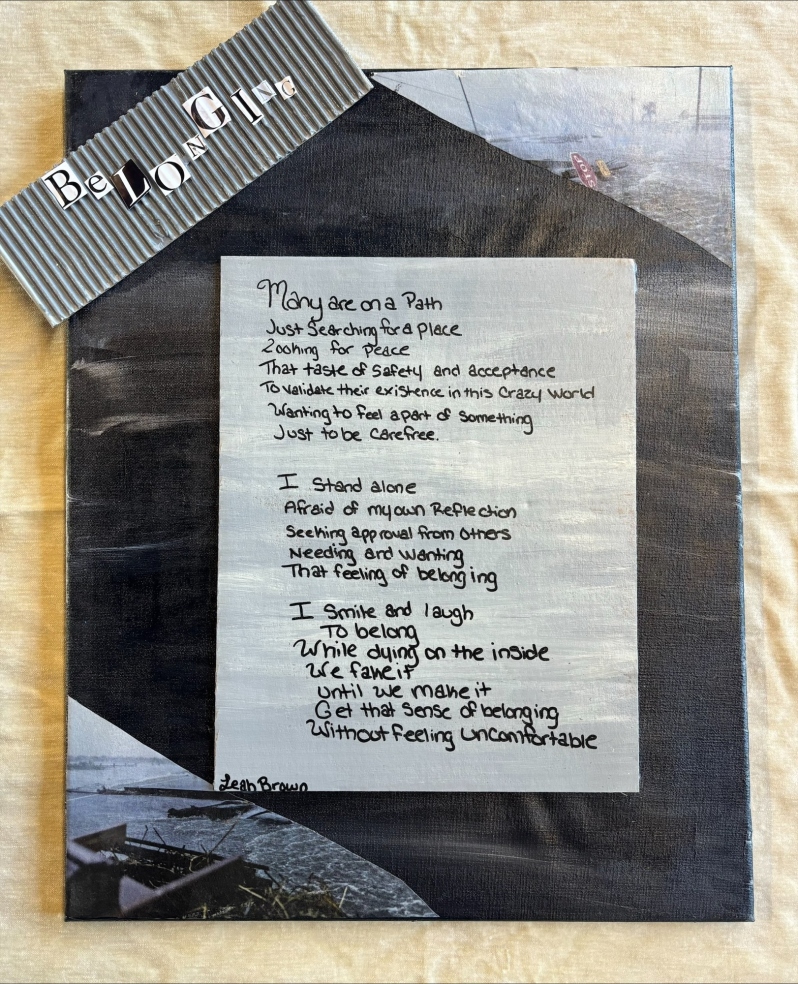 BeLOnGING
STOP
Many are on a Path
Just Searching for a Place
Looking for Peace
That taste of Safety and acceptance
To validate their existence in this Crazy World
Wanting to feel a part of something
Just to be Carefree.
I Stand alone
Afraid of my own Reflection
Seeking approval from Others
Needing and Wanting
That feeling of belonging
I Smile and laugh
To belong
While dying on the inside
We fake it
until we make it
Get that Sense of belonging
Without Feeling Uncomfortable
Leah Brown